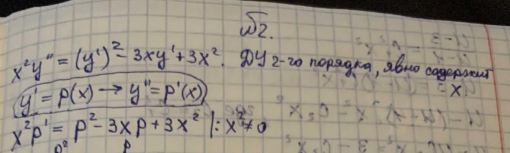 №2.
x²y'' = (y')² - 3xy' + 3x². ДУ 2-го порядка, явно содержит x
y' = p(x) → y'' = p'(x)
x²p' = p² - 3xp + 3x² |: x² ≠ 0
p² p